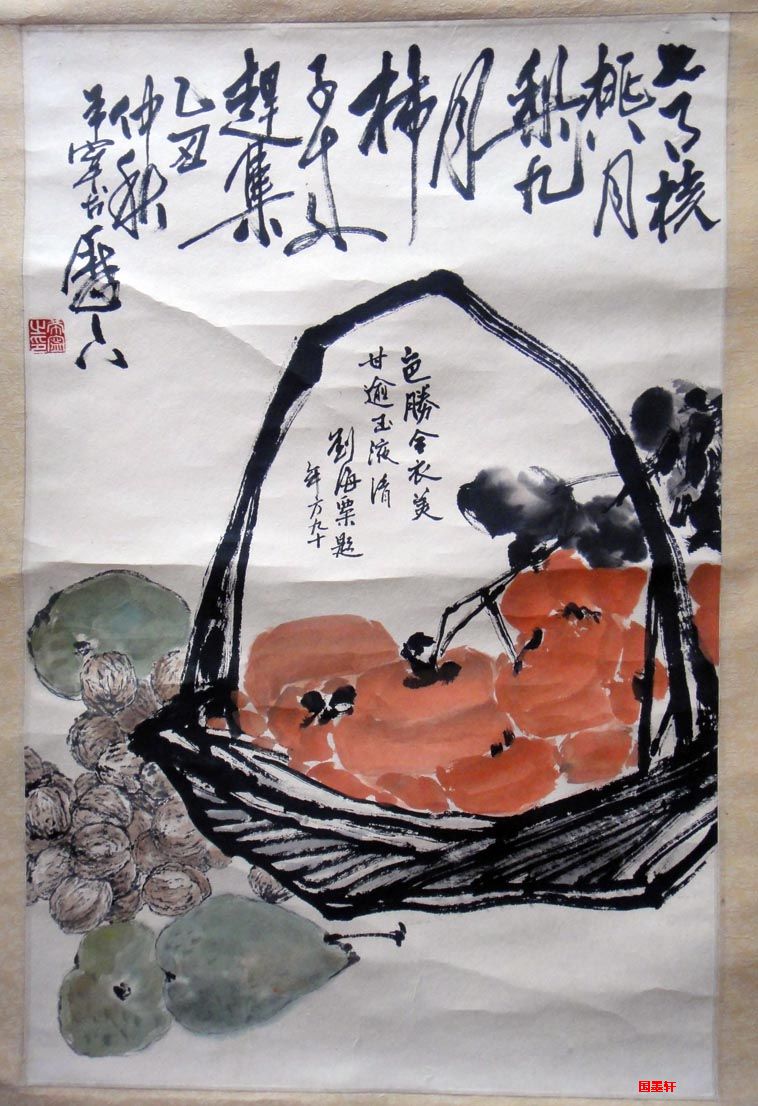 七月核
桃八月
梨九
月
柿
子
趕集
乙丑
仲秋
色勝金衣美
甘逾玉液清
劉海粟題
年方九十
国墨轩